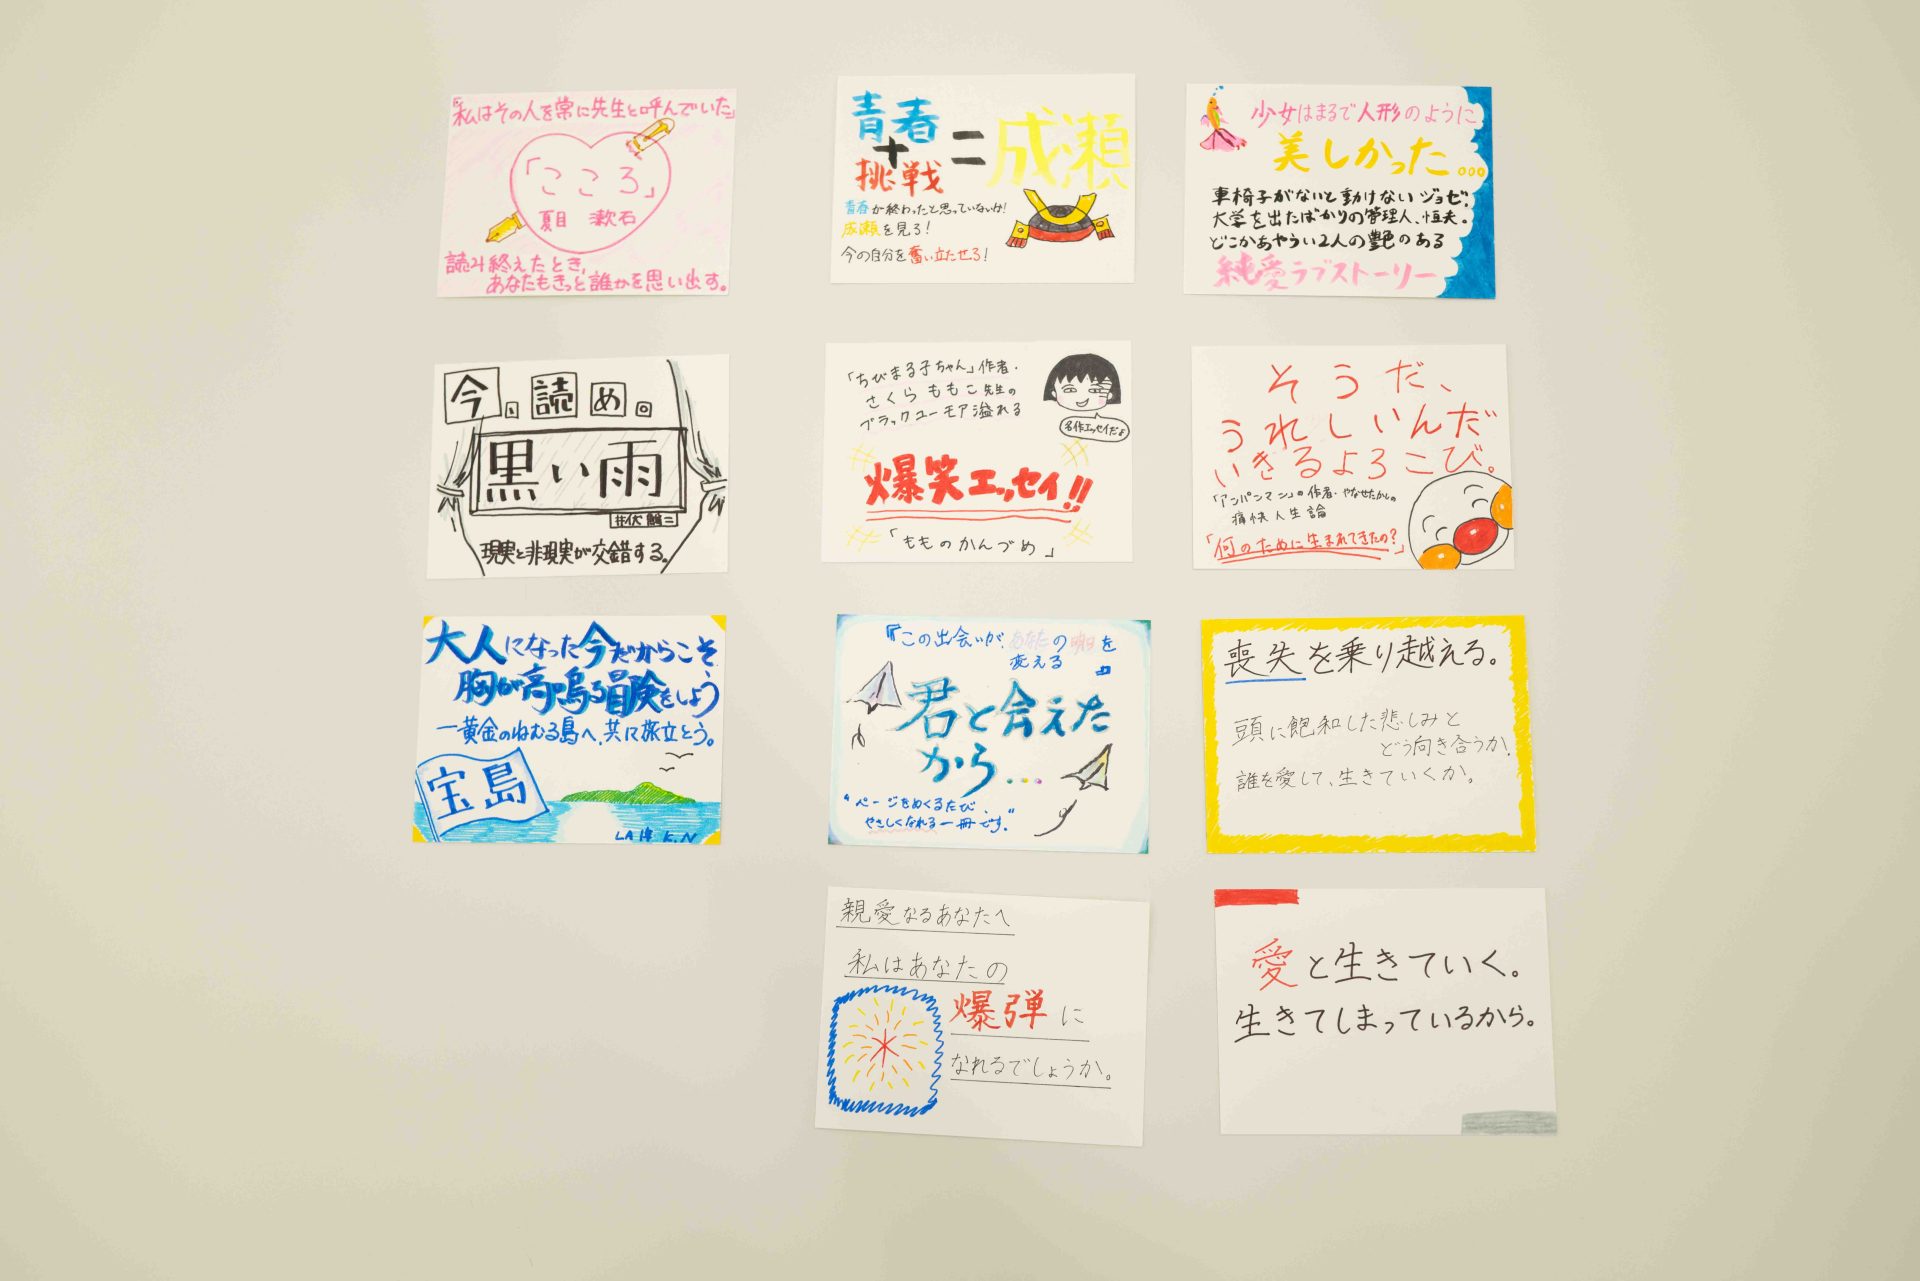 「私はその人を常に先生と呼んでいた」
「こころ」
夏目 漱石
読み終えたとき、
あなたもきっと誰かを思い出す。
青春
+
挑戦
=
成瀬
青春が終わったと思っていないか!
成瀬を見ろ!
今の自分を奮い立たせろ!
少女はまるで人形のように
美しかった...
車椅子がないと動けないジョゼ。
大学を出たばかりの管理人、恒夫。
どこかあやうい2人の艶のある
純愛ラブストーリー
今、読め。
黒い雨
井伏鱒二
現実と非現実が交錯する。
「ちびまる子ちゃん」作者・
さくらももこ先生の
ブラックユーモア溢れる
名作エッセイだよ
爆笑エッセイ!!
「もものかんづめ」
そうだ、
うれしいんだ
いきるよろこび。
「アンパンマン」の作者・やなせたかしの
痛快人生論
「何のために生まれてきたの?」
大人になった今だからこそ
胸が高鳴る冒険をしよう
―黄金のねむる島へ、共に旅立とう。
宝島
K.N
『この出会いが、あなたの明日を
変える』
君と会えた
から...
"ページをめくるたび、
やさしくなれる一冊です。"
喪失を乗り越える。
頭に飽和した悲しみと
どう向き合うか。
誰を愛して、生きていくか。
親愛なるあなたへ
私はあなたの
爆弾に
なれるでしょうか。
愛と生きていく。
生きてしまっているから。